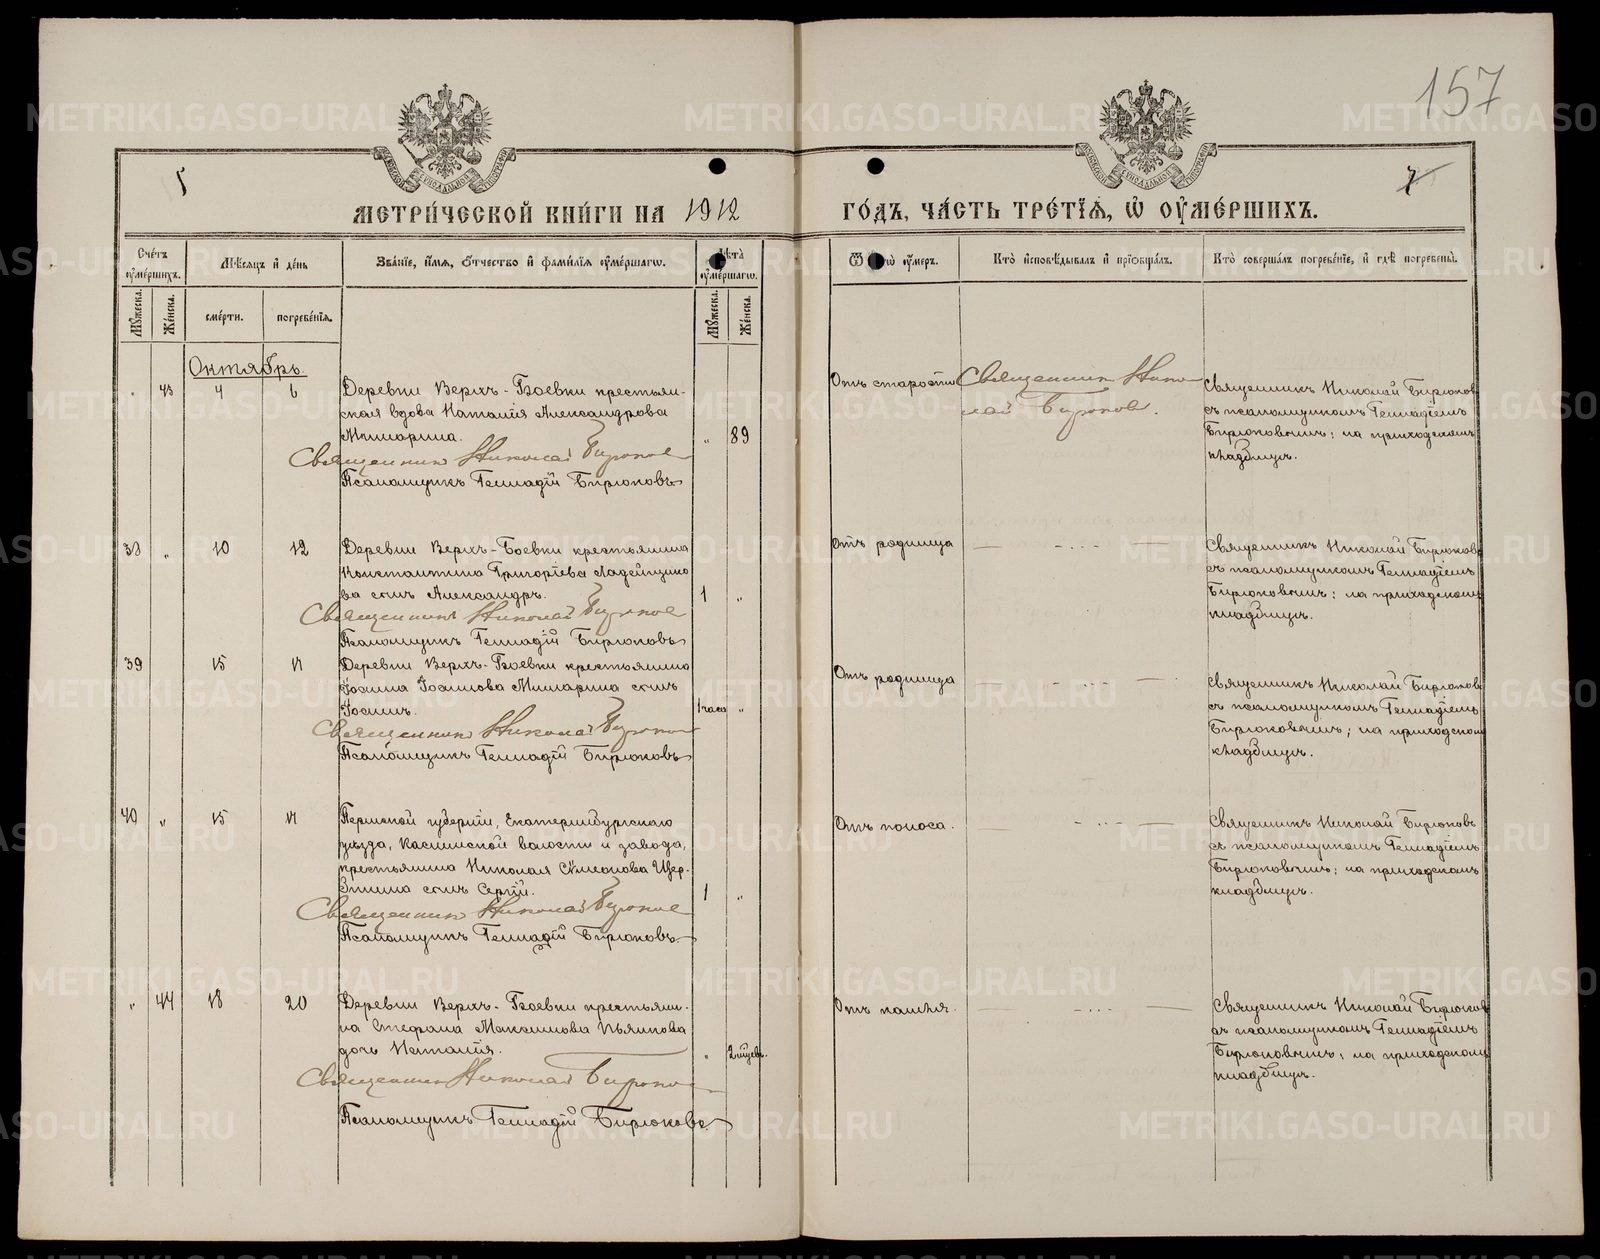 157
МЕТРИ́ЧЕСКОЙ КНИ́ГИ НА 1912
ГО́ДЪ, ЧА́СТЬ ТРЕ́ТІѦ, Ѡ҆ ОУ҆МЕ́РШИХЪ.
Сче́тъ оу҆ме́ршихъ.
Мѣ́сяцъ и҆ де́нь
Зва́нїе, и҆́мѧ, о҆́тчество и҆ фами́лїѧ оу҆ме́ршагѡ.
Лѣ́та оу҆ме́ршагѡ.
оу҆́меръ.
Кто̀ и҆сповѣ́дывалъ и҆ прїѡбща́лъ.
Кто̀ соверша́лъ погребе́нїе, и҆ гдѣ̀ погребены̀.
Мꙋ́жеска.
Же́нска.
сме́рти.
погребе́нїѧ.
Мꙋ́жеска.
Же́нска.
Октябрь.
43 4 6 Деревни Верхъ-Боевки крестьян-
ская вдова Наталія Александрова
" 89
Священник Николай Бирюков
Псаломщикъ Геннадій Бирюковъ
Отъ старости
Священник Нико-
лай Бирюков.
Священникъ Николай Бирюков
съ псаломщикомъ Геннадіемъ
Бирюковымъ; на приходскомъ
кладбищѣ.
38 " 10 12 Деревни Верхъ-Боевки крестьянина
Константина Григоріева
ва сынъ Александръ. 1 "
Священник Николай Бирюков
Псаломщикъ Геннадій Бирюковъ
Отъ родимца
Священникъ Николай Бирюковъ
съ псаломщикомъ Геннадіемъ
Бирюковымъ: на приходскомъ
кладбищѣ.
39 15 17 Деревни Верхъ-Боевки крестьянина
сынъ
1 часъ "
Священник Николай Бирюков
Псаломщикъ Геннадій Бирюковъ
Отъ родимца
Священникъ Николай Бирюковъ
съ псаломщикомъ Геннадіемъ
Бирюковымъ; на приходском
кладбищѣ.
40 " 15 17 Пермской губерніи, Екатеринбургскаго
уѣзда, Каслинской волости и завода,
крестьянина Николая Симеонова Щер-
бинина сынъ Сергій. 1 "
Священник Николай Бирюков
Псаломщикъ Геннадій Бирюковъ.
Отъ поноса.
Священникъ Николай Бирюковъ
съ псаломщикомъ Геннадіемъ
Бирюковымъ; на приходскомъ
кладбищѣ.
" 44 18 20 Деревни Верхъ-Боевки крестьяни-
на Стефана Максимова Пьянкова
дочь Наталія. " 2 мѣсяц.
Священник Николай Бирюков
Псаломщикъ Геннадій Бирюковъ.
Отъ кашля.
Священникъ Николай Бирюковъ
съ псаломщикомъ Геннадіемъ
Бирюковымъ; на приходскомъ
кладбищѣ.
METRIKI.GASO-URAL.RU